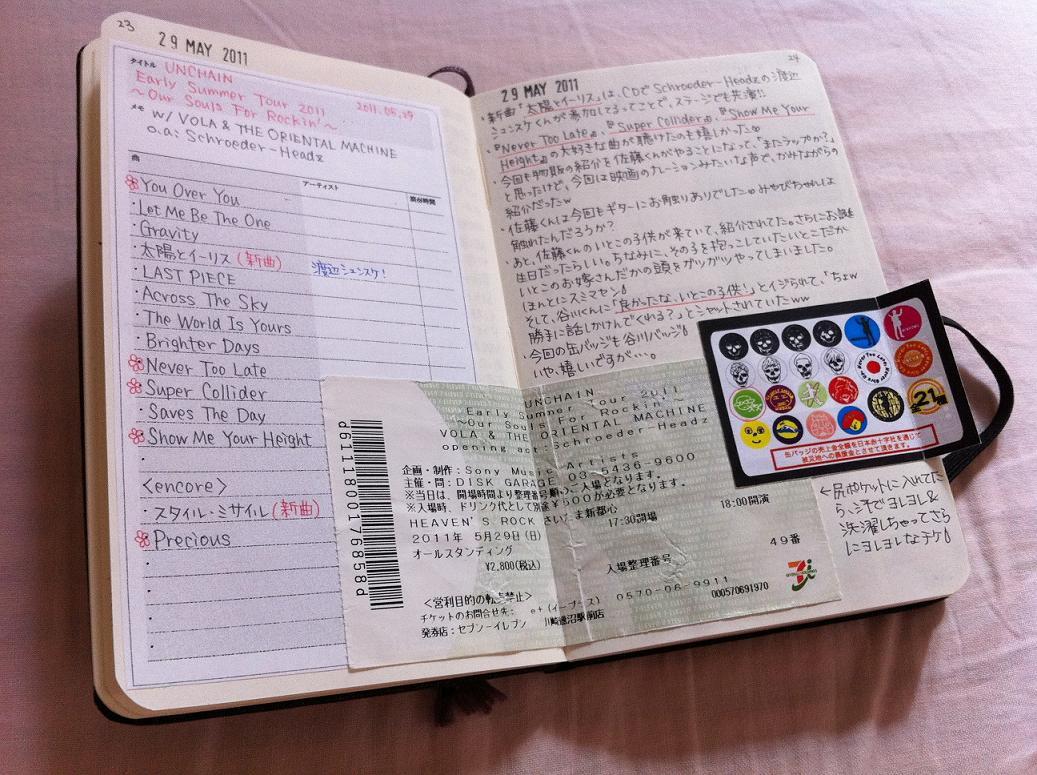 23
29 MAY 2011
タイトル
UNCHAIN
Early Summer Tour 2011
2011.05.29
~Our Souls For Rockin'~
メモ
w/ VOLA & THE ORIENTAL MACHINE
o.a: Schroeder-Headz
曲
アーティスト
You Over You
・Let Me Be The One
・Gravity
・太陽とイーリス(新曲)
渡辺シュンスケ!
・LAST PIECE
・Across The Sky
・The World Is Yours
・Brighter Days
Never Too Late
Super Collider
・Saves The Day
Show Me Your Height
<encore>
・スタイル・ミサイル(新曲)
Precious
24
29 MAY 2011
・新曲「太陽とイーリス」は、CDで Schroeder-Headzの渡辺
シュンスケくんが参加してるってことで、ステージでも共演!!
・『Never Too Late』、『Super Collider』、『Show Me Your
Height』の大好きな曲が聴けたのも嬉しかった
・今回も物販の紹介を佐藤くんがやることになって、「またラップか?」
と思ったけど、今回は映画のナレーションみたいな声で、かみながらの
紹介だったw
・佐藤くんは今回もギターにお触りありでした
触れたんだろうか?
・あと、佐藤くんのいとこの子供が来ていて、紹介された。さらにお誕
生日だったらしい。ちなみに、その子を抱っこしていたいとこだか
いとこのお嫁さんだかの頭をガッツガツやってしまいました。
ほんとにスミマセン
そして、谷川くんに「良かったな、いとこの子供!」とイジられて、「ちょw
勝手に話しかけんでくれる?」とシャットされていたww
・今回の缶バッジも谷川バッジ
いや、嬉しいですが…。
缶バッジの売上金全額を日本赤十字社を通じて
被災地への義援金とさせて頂きます。
全21種
←尻ポケットに入れてた
ら、汗でヨレヨレ&
洗濯しちゃってさら
にヨレヨレなチケ
UNCHAIN
Early Summer Tour 2011
~Our Souls For Rockin'~
VOLA & THE ORIENTAL MACHINE
opening act:Schroeder-Headz
企画・制作:Sony Music Artists
主催・問:DISK GARAGE 03-5436-9600
※当日は、開場時間より整理番号順のご入場となります。
※入場時、ドリンク代として別途¥500が必要となります。
HEAVEN'S ROCK さいたま新都心
2011年 5月29日(日)
17:30開場
18:00開演
オールスタンディング
¥2,800(税込)
入場整理番号
49番
<営利目的の転売禁止>
チケットのお問合せ先: e+(イープラス) 0570-06-9911
発券店:セブンーイレブン 川崎遠沼駅前店
000570691970
d6111800176858d